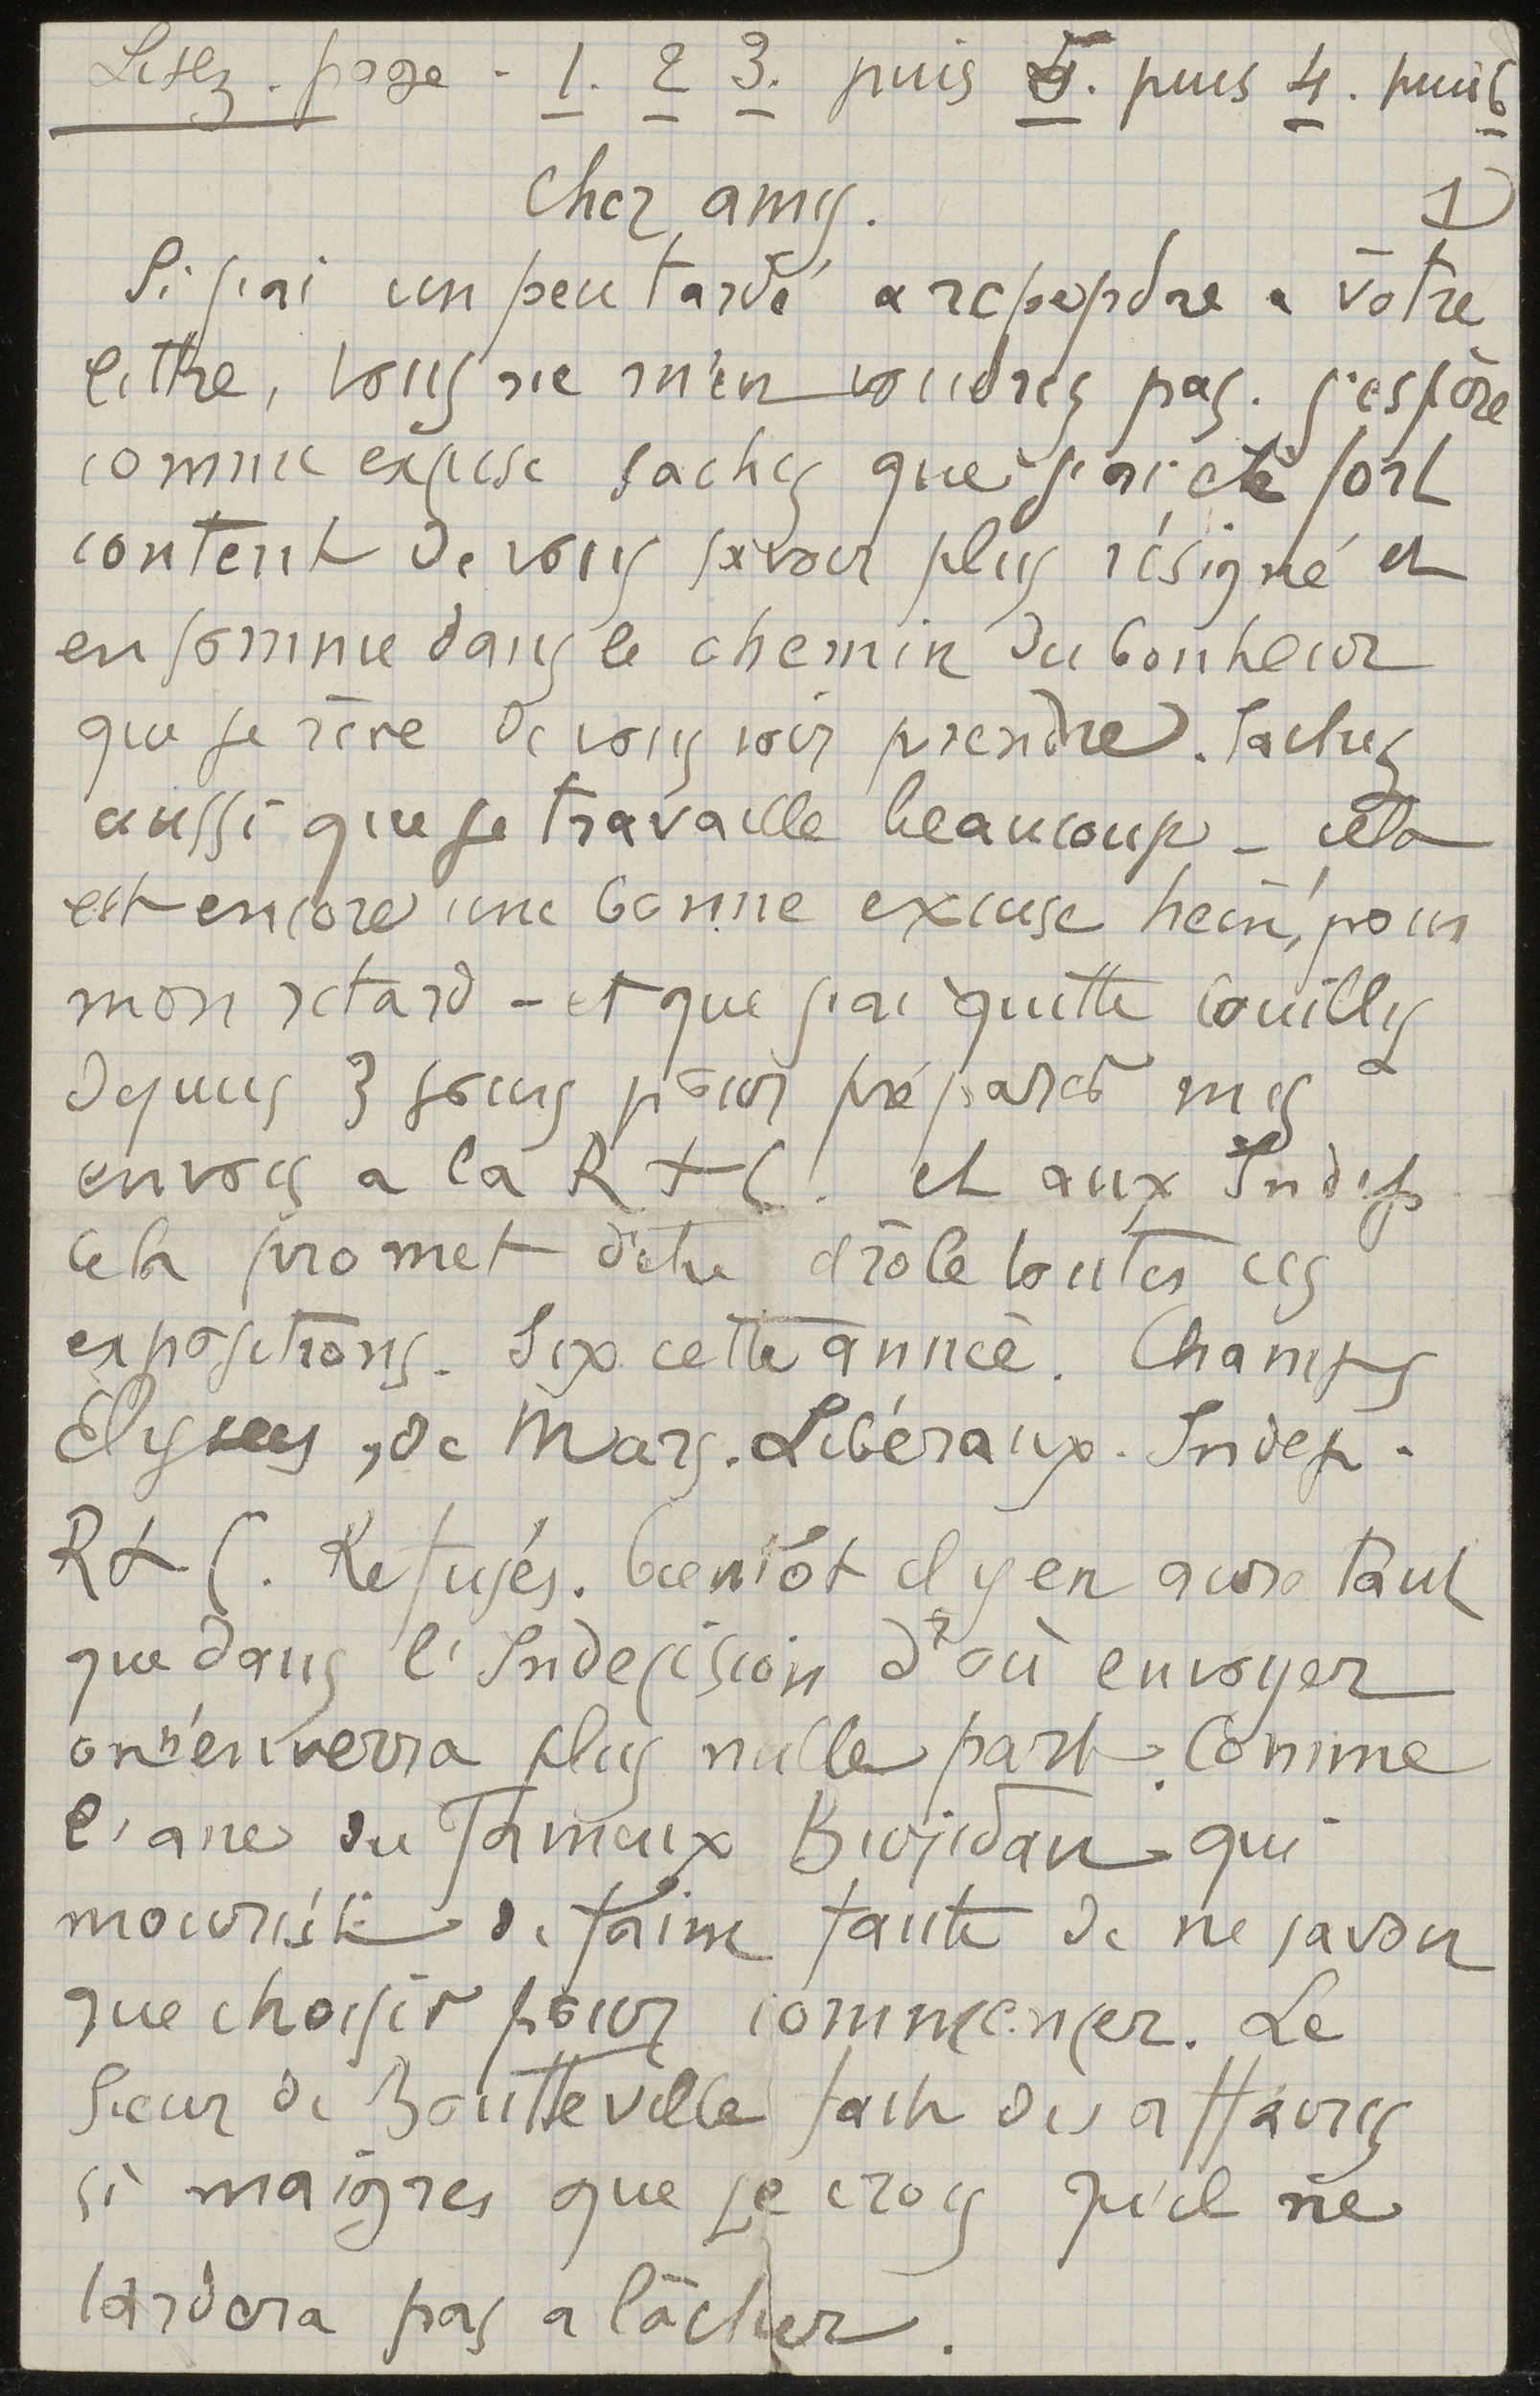 Lisez. page - 1. 2 3. puis 5. puis 4. puis 6
Cher amy. 1)
Si j'ai un peu tardé a repondre a votre
lettre, vous ne m'en voudrez pas. j'espère
comme excuse sachez que j'ai été fort
content de vous savoir plus résigné et
en somme dans le chemin du bonheur
que je rêve de vous voir prendre. Sachez
aussi que je travaille beaucoup - cela
est encore une bonne excuse hein, pour
mon retard - et que j'ai quitté Couilly
depuis 3 jours pour préparer mes
envois a la R + C. et aux Indep
cela promet d'etre drôle toutes ces
expositions. Six cette année. Champs
Elysees, de Mars. Libéraux. Indep.
R + C. Refusés. bientôt il y en aura tant
que dans l'Indecision d'où envoyer
on n'enverra plus nulle part. Comme
l'ane du fameux Burjidan qui
mourut de faim faute de ne savoir
que choisir pour commençer. Le
Sieur de Boutteville fait des affaires
si maigres que je crois qu'il ne
tardera pas a lâcher.